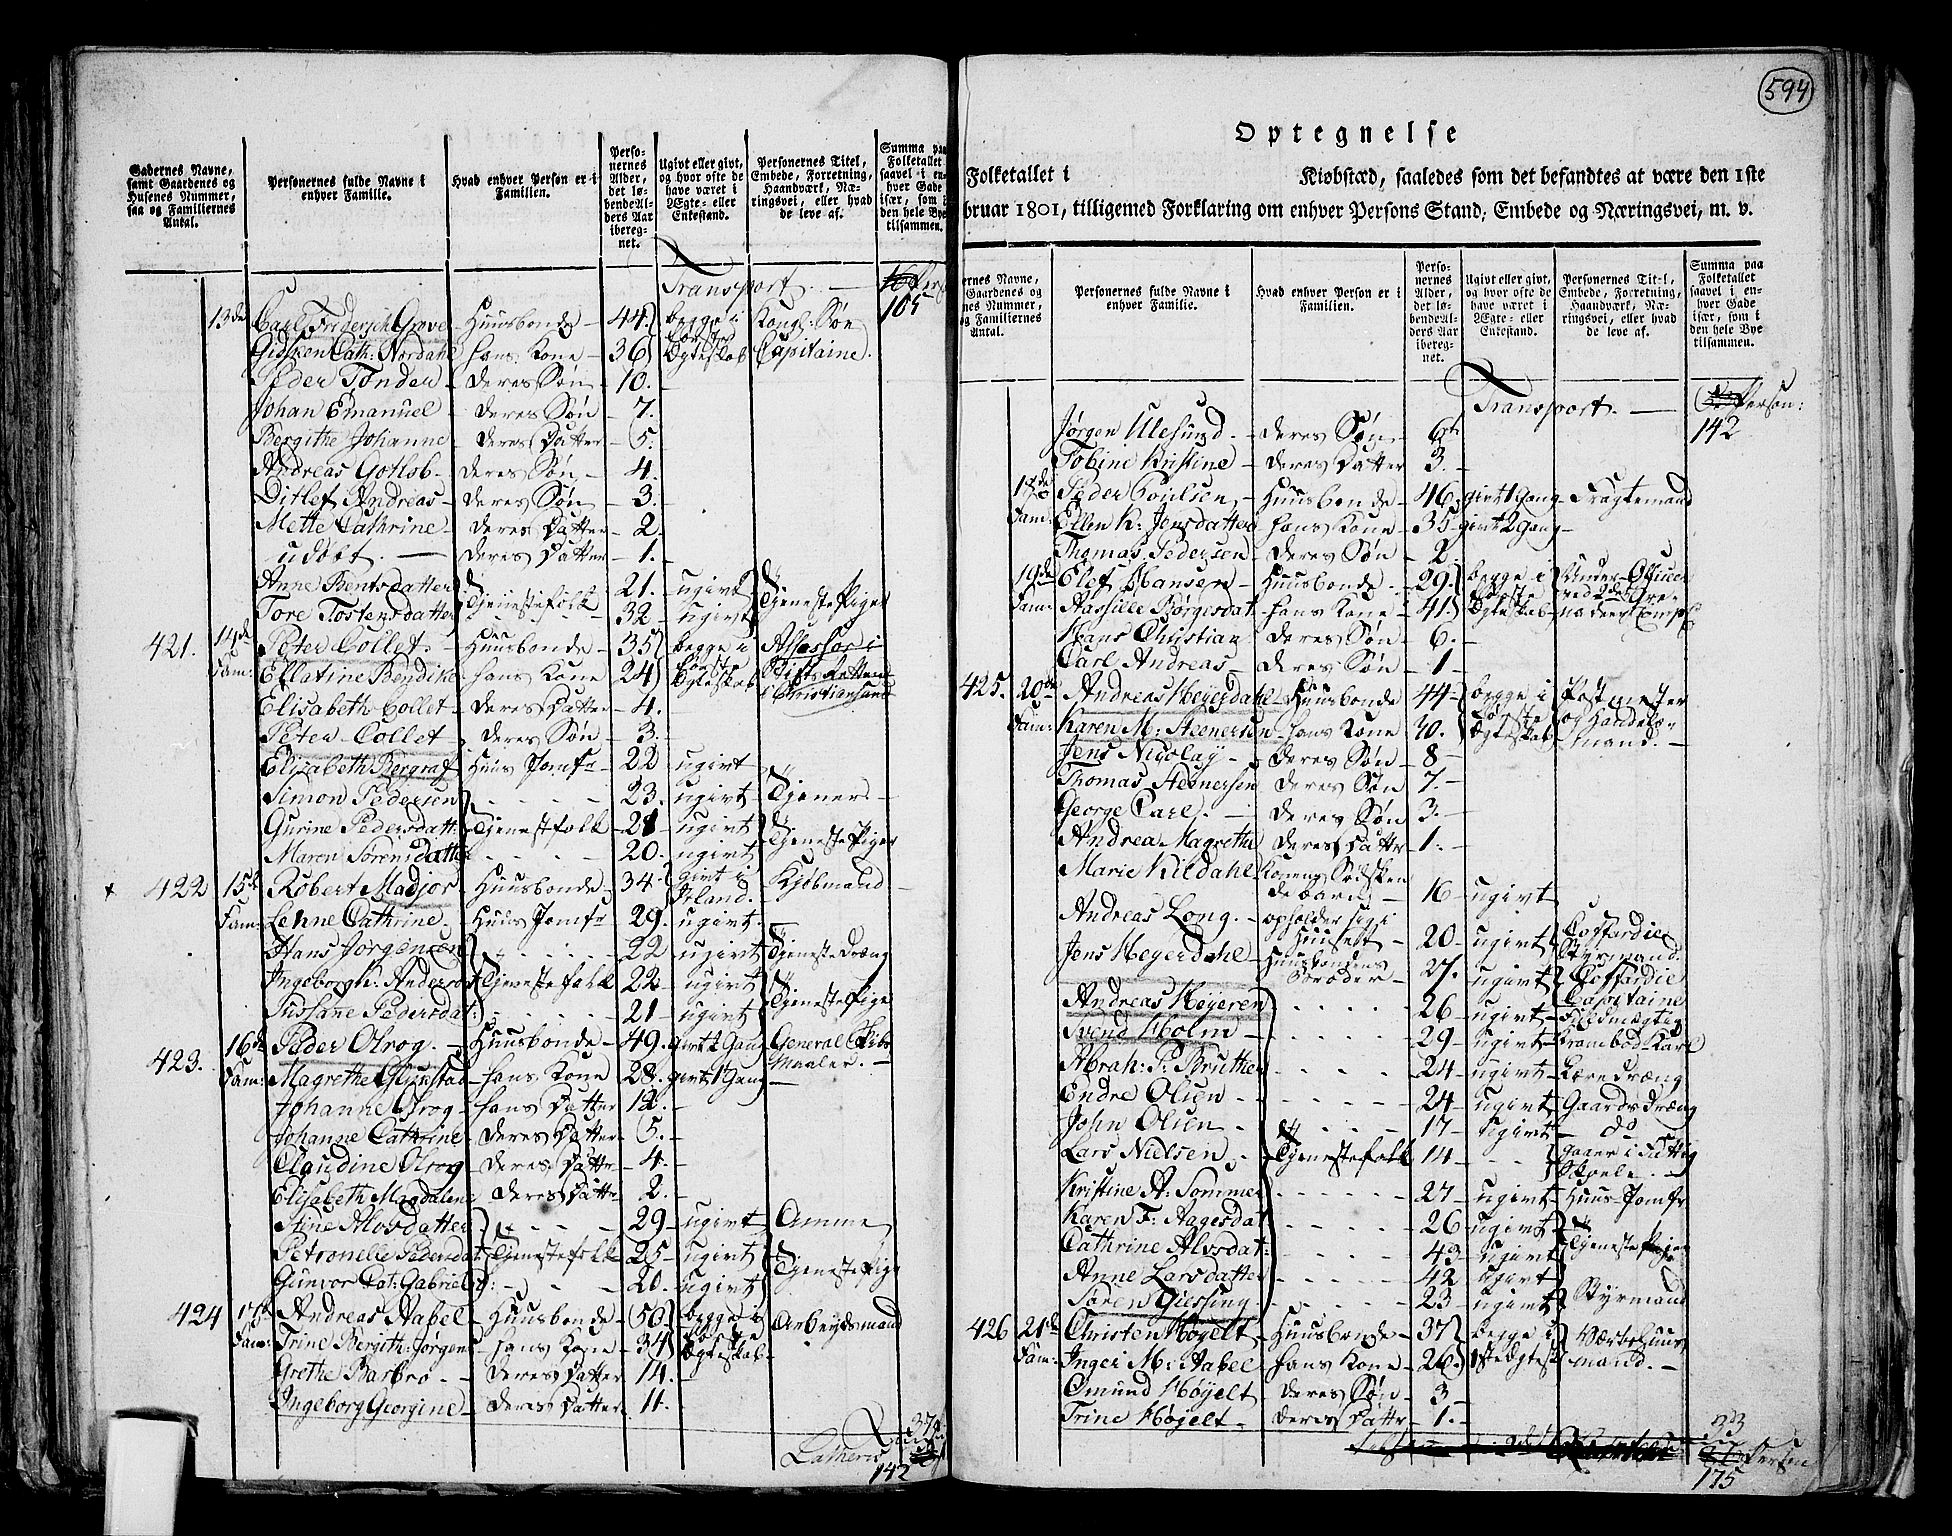 594
Gadernes Navne, samt Gaardenes og Husenes Nummer, saa og Familiernes Antal.
Personernes fulde Navne i enhver Familie.
Hvad enhver Person er i Familien.
Personernes Alder, det løbende Alders Aar iberegnet.
Ugivt eller givt, og hvor ofte de have været i Ægte- eller Enkestand.
Personernes Titel, Embede, Forretning, Haandværk, Næringsvei, eller hvad de leve af.
Summa paa Folketallet saavel i enhver Gade især, som i den hele Bye tilsammen.
Transport. — 105
13de Carl Fredersch Grove - Huusbonde - 44. begge i første Ægteskab Kongl: Søe Capitaine.
Gidsken Cath: Nordahl hans Kone - 36
Peder Tonder - deres Søn - 10.
Johan Emanuel - deres Søn - 7.
Bergithe Johanne - deres Datter - 5.
Andreas Gotlob - deres Søn - 4.
Ditlef Andreas - deres Søn - 3.
Mette Cathrine - deres Datter - 2.
udøbt. — deres Datter - 1.
Anne Bentsdatter Tjenestefolk 21. ugivt Tjeneste Piger
Tore Tostensdatter 32 - ugivt
421. 14de Fam: Peter Collet. - Huusbonde - 35 begge i første Ægteskab Assessor i Stifts Retten i Christiansand
Ellatine Bendike hans Kone 24
Elisabeth Collet - deres Datter - 4.
Peter Collet - deres Søn - 3.
Elizabeth Bergraf Huus Jomfr - 22 ugivt
Simon Pedersen - 23. ugivt - Tjener -
Gurine Pedersdatt: Tjenestefolk - 21 - ugivt Tjeneste Piger
Maren Sørensdatter - 20. ugivt
422 15de Fam: Robert Madjor - Huusbonde - 34. givt i Irland. - Kjøbmand -
Lehne Cathrine. Huus Jomfr - 29. ugivt.
Hans Jørgensen - 22 ugivt Tjeneste Dræng
Ingeborg Tjenestefolk 22 - ugivt Tjeneste Piger
Sussane Pedersdat: - 21 - ugivt
423. 16de Fam: Peder Olrog. - Huusbonde - 49. givt 2 Gang General Skibs Maaler. -
Magrethe hans Kone - 28. givt 1 Gang -
Johanne Olrog - hans Datter 12. -
Johanne Cathrine - deres Datter - 5. -
Claudine Olrog - deres Datter - 4. -
Elisabeth Magdalene deres Datter - 2. -
Stine Alvsdatter - 29 - ugivt Amme
Petronelle Pedersdat: Tjenestefolk - 25 - ugivt Tjeneste Piger
Gunvor Dat: Gabriels - 20. ugivt
424 17de Fam: Andreas Aabel - Huusbonde - 50 begge i første Ægteskab - Arbeydsmand
Trine Bergith: Jørgens - hans Kone - 34
Grethe Barbro - - deres Datter 14. -
Ingeborg Georgine - deres Datter - 11. -
Lateris 37
142
Optegnelse
Folketallet i Kiøbstæd, saaledes som det befandtes at være den 1ste
bruar 1801, tilligemed Forklaring om enhver Persons Stand, Embede og Næringsvei, m. v.
ernes Navne, Gaardenes og nes Nummer, og Familiernes Antal.
Personernes fulde Navne i enhver Familie.
Hvad enhver Person er i Familien.
Personernes Alder, det løbende Alders Aar iberegnet.
Ugivt eller givt, og hvor ofte de have været i Ægte- eller Enkestand.
Personernes Titel, Embede, Forretning, Haandværk, Næringsvei, eller hvad de leve af.
Summa paa Folketallet saavel i enhver Gade især, som i den hele Bye tilsammen.
Transport. — Person: 142
Jørgen Ulesund. - deres Søn - 6.
Tobine Kristine - deres Datter 3. -
Fam: Peder Poulsen, - Huusbonde - 46. givt 1 Gang - Fragtemand
Ellen K: Jensdatter hans Kone - 35 givt 2 Gang -
Thomas Pedersen - deres Søn - 2.
19de Fam: Elef Hansen - Huusbonde - 29. begge i første Ægteskab - Under-Officer ved 2det
Aasille Børgesdat - hans Kone - 41
Hans Christian - deres Søn - 6. -
Carl Andreas - deres Søn - 1 -
425. 20de Fam: Andreas Heyerdahl - Huusbonde 44 - begge i første Ægteskab Postmester og Handelsmand. -
Karen M: Steenersen - hans Kone 40.
Jens Nicolay - deres Søn - 8 -
Thomas Steenersen deres Søn 7. -
George Carl. - deres Søn - 3. -
Andrea Magrethe deres Datter - 1. -
Marie Kildahl Konens Sødskendebarn - 16 - ugivt
Andreas Long. - opholder sig i Huuset - 20 - ugivt Coffardie Styrmand.
Jens Heyerdahl - Huusbondens Broder - 27. ugivt Coffardie Capitaine
Andreas Heyeren - 26 - ugivt - Fuldmægtig
Svend Holm - 29 - ugivt - Krambod-Karl
Abrah: P: Bruthe - 24 - ugivt - Læredræng
Endre Olsen - 24 - ugivt - Gaards dræng
John Olsen - 17 - ugivt - do
Lars Nielsen - Tjenestefolk 14 - gaaer i Fattig Skole. -
Kristine A: Sommer - 27 - ugivt - Huus-Jomfr
Karen F: Aagesdat - 26 ugivt Tjeneste Piger
Cathrine Alvsdat: - 43 - ugivt
Anne Larsdatter - 42 ugivt
Søren Giessing - 23 - ugivt Styrmand
426 21de Fam: Christen Høyelt, Huusbonde - 37 begge i 1ste Ægtesk: Værtshuusmand. -
Inger M: Aabel - hans Kone - 26.
Omund Høyelt deres Søn - 3
Trine Høyelt - deres Datter - 1. -
33
Person
175